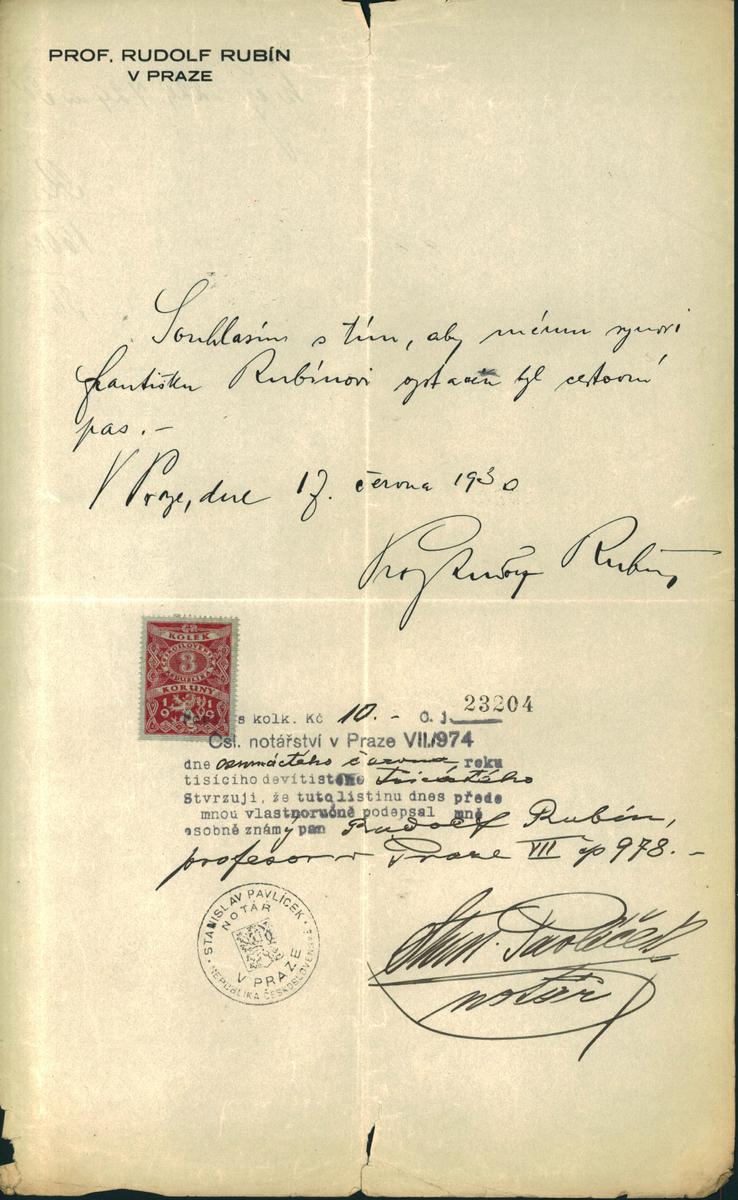 PROF. RUDOLF RUBÍN
V PRAZE
Souhlasím s tím, aby mému synovi
Františku Rubínovi vystaven byl cestovní
pas. –
V Praze, dne 17. června 1930
Prof Rudolf Rubín
KOLEK
ČESKOSLOVENSKÁ
REPUBLIKA
3
KORUNY
1919
s kolk. Kč 10.- Č. j. 23204
Čsl. notářství v Praze VII./974
dne osmnáctého června roku
tisícího devítistého třicátého
Stvrzuji, že tuto listinu dnes přede
mnou vlastnoručně podepsal mně
osobně známý pan Rudolf Rubín,
profesor v Praze VII čp 978. –
STANISLAV PAVLÍČEK
NOTÁŘ
V PRAZE
REPUBLIKA ČESKOSLOVENSKÁ
Stan. Pavlíček
notář